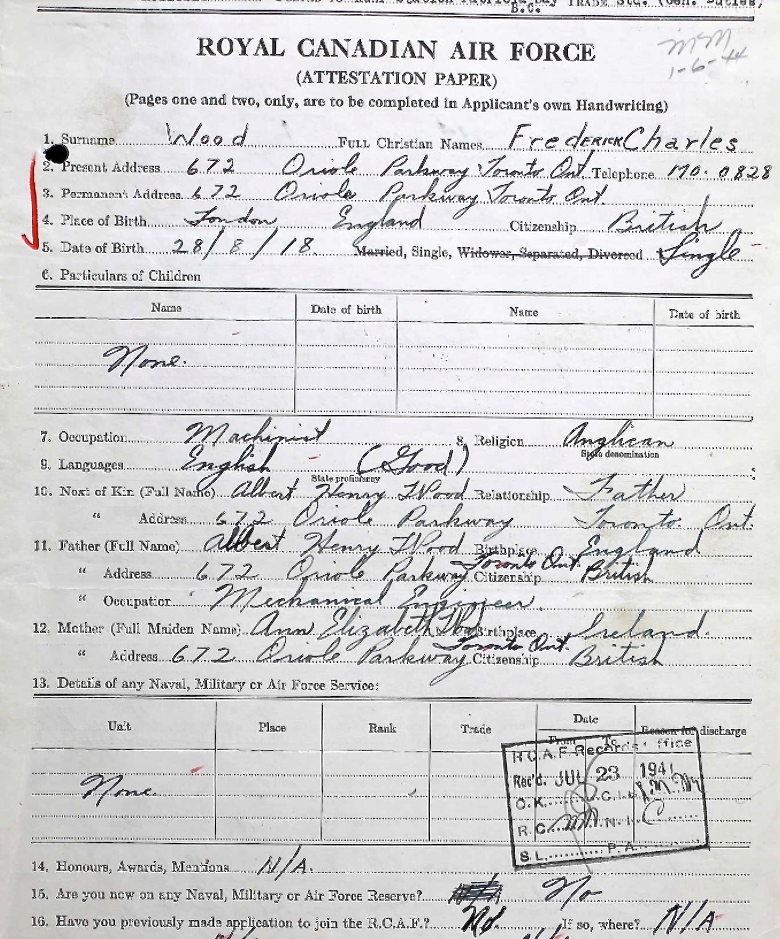 B.C.
TRADE Std. (Gen. Duties,
MM
1-6-44
ROYAL CANADIAN AIR FORCE
(ATTESTATION PAPER)
(Pages one and two, only, are to be completed in Applicant's own Handwriting)
1. Surname Wood FULL Christian Names Frederick Charles
2. Present Address 672 Oriole Parkway Toronto Ont. Telephone MO. 0828
3. Permanent Address 672 Oriole Parkway Toronto Ont.
4. Place of Birth London England Citizenship British
5. Date of Birth 28/8/18. Married, Single, Widower, Separated, Divorced Single
6. Particulars of Children
Name Date of birth Name Date of birth
None.
7. Occupation Machinist 8. Religion Anglican
State denomination
9. Languages English (Good)
State proficiency
10. Next of Kin (Full Name) Albert Henry Wood Relationship Father
" Address 672 Oriole Parkway Toronto Ont.
11. Father (Full Name) Albert Henry Wood Birthplace England
" Address 672 Oriole Parkway Toronto Ont. Citizenship British
" Occupation Mechanical Engineer
12. Mother (Full Maiden Name) Ann Elizabeth Birthplace Ireland.
" Address 672 Oriole Parkway Toronto Ont. Citizenship British
13. Details of any Naval, Military or Air Force Service:
Unit Place Rank Trade Date From To Reason for discharge
None.
R.C.A.F. Records Office
Rec'd. JUL 23 1941
O.K. C.I.L.
R.C. N.I. C
S.L. P.A.
14. Honours, Awards, Mentions N/A.
15. Are you now on any Naval, Military or Air Force Reserve? No
16. Have you previously made application to join the R.C.A.F.? No. If so, where? N/A